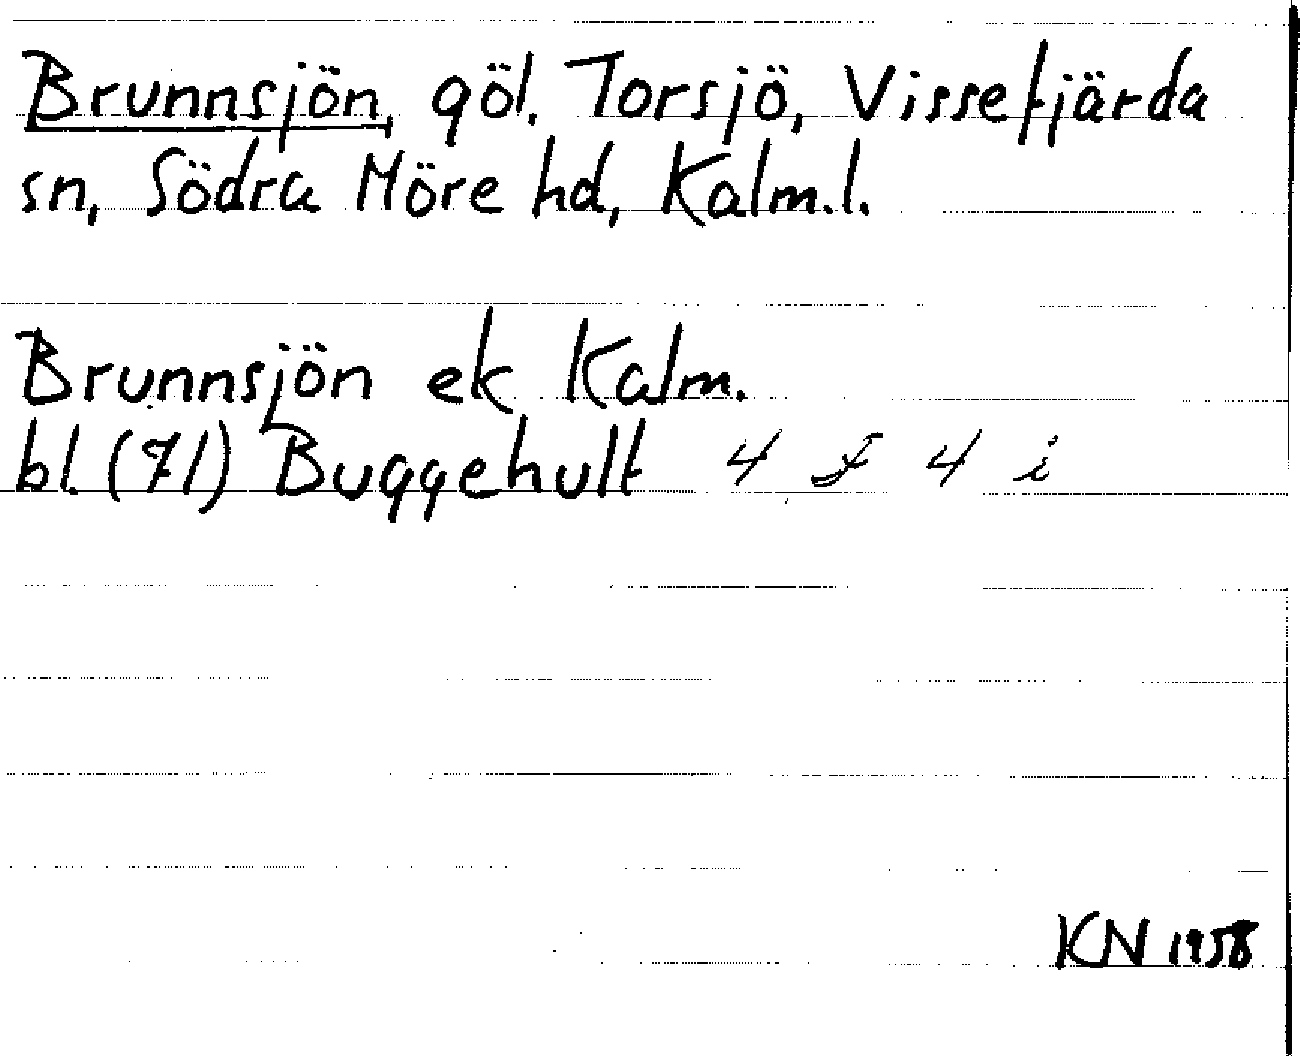 Brunnsjön, göl. Torsjö, Vissefjärda
sn, Södra Möre hd, Kalm.l.
Brunnsjön ek Kalm.
bl. (71) Buggehult 4 F 4 i
KN 1958